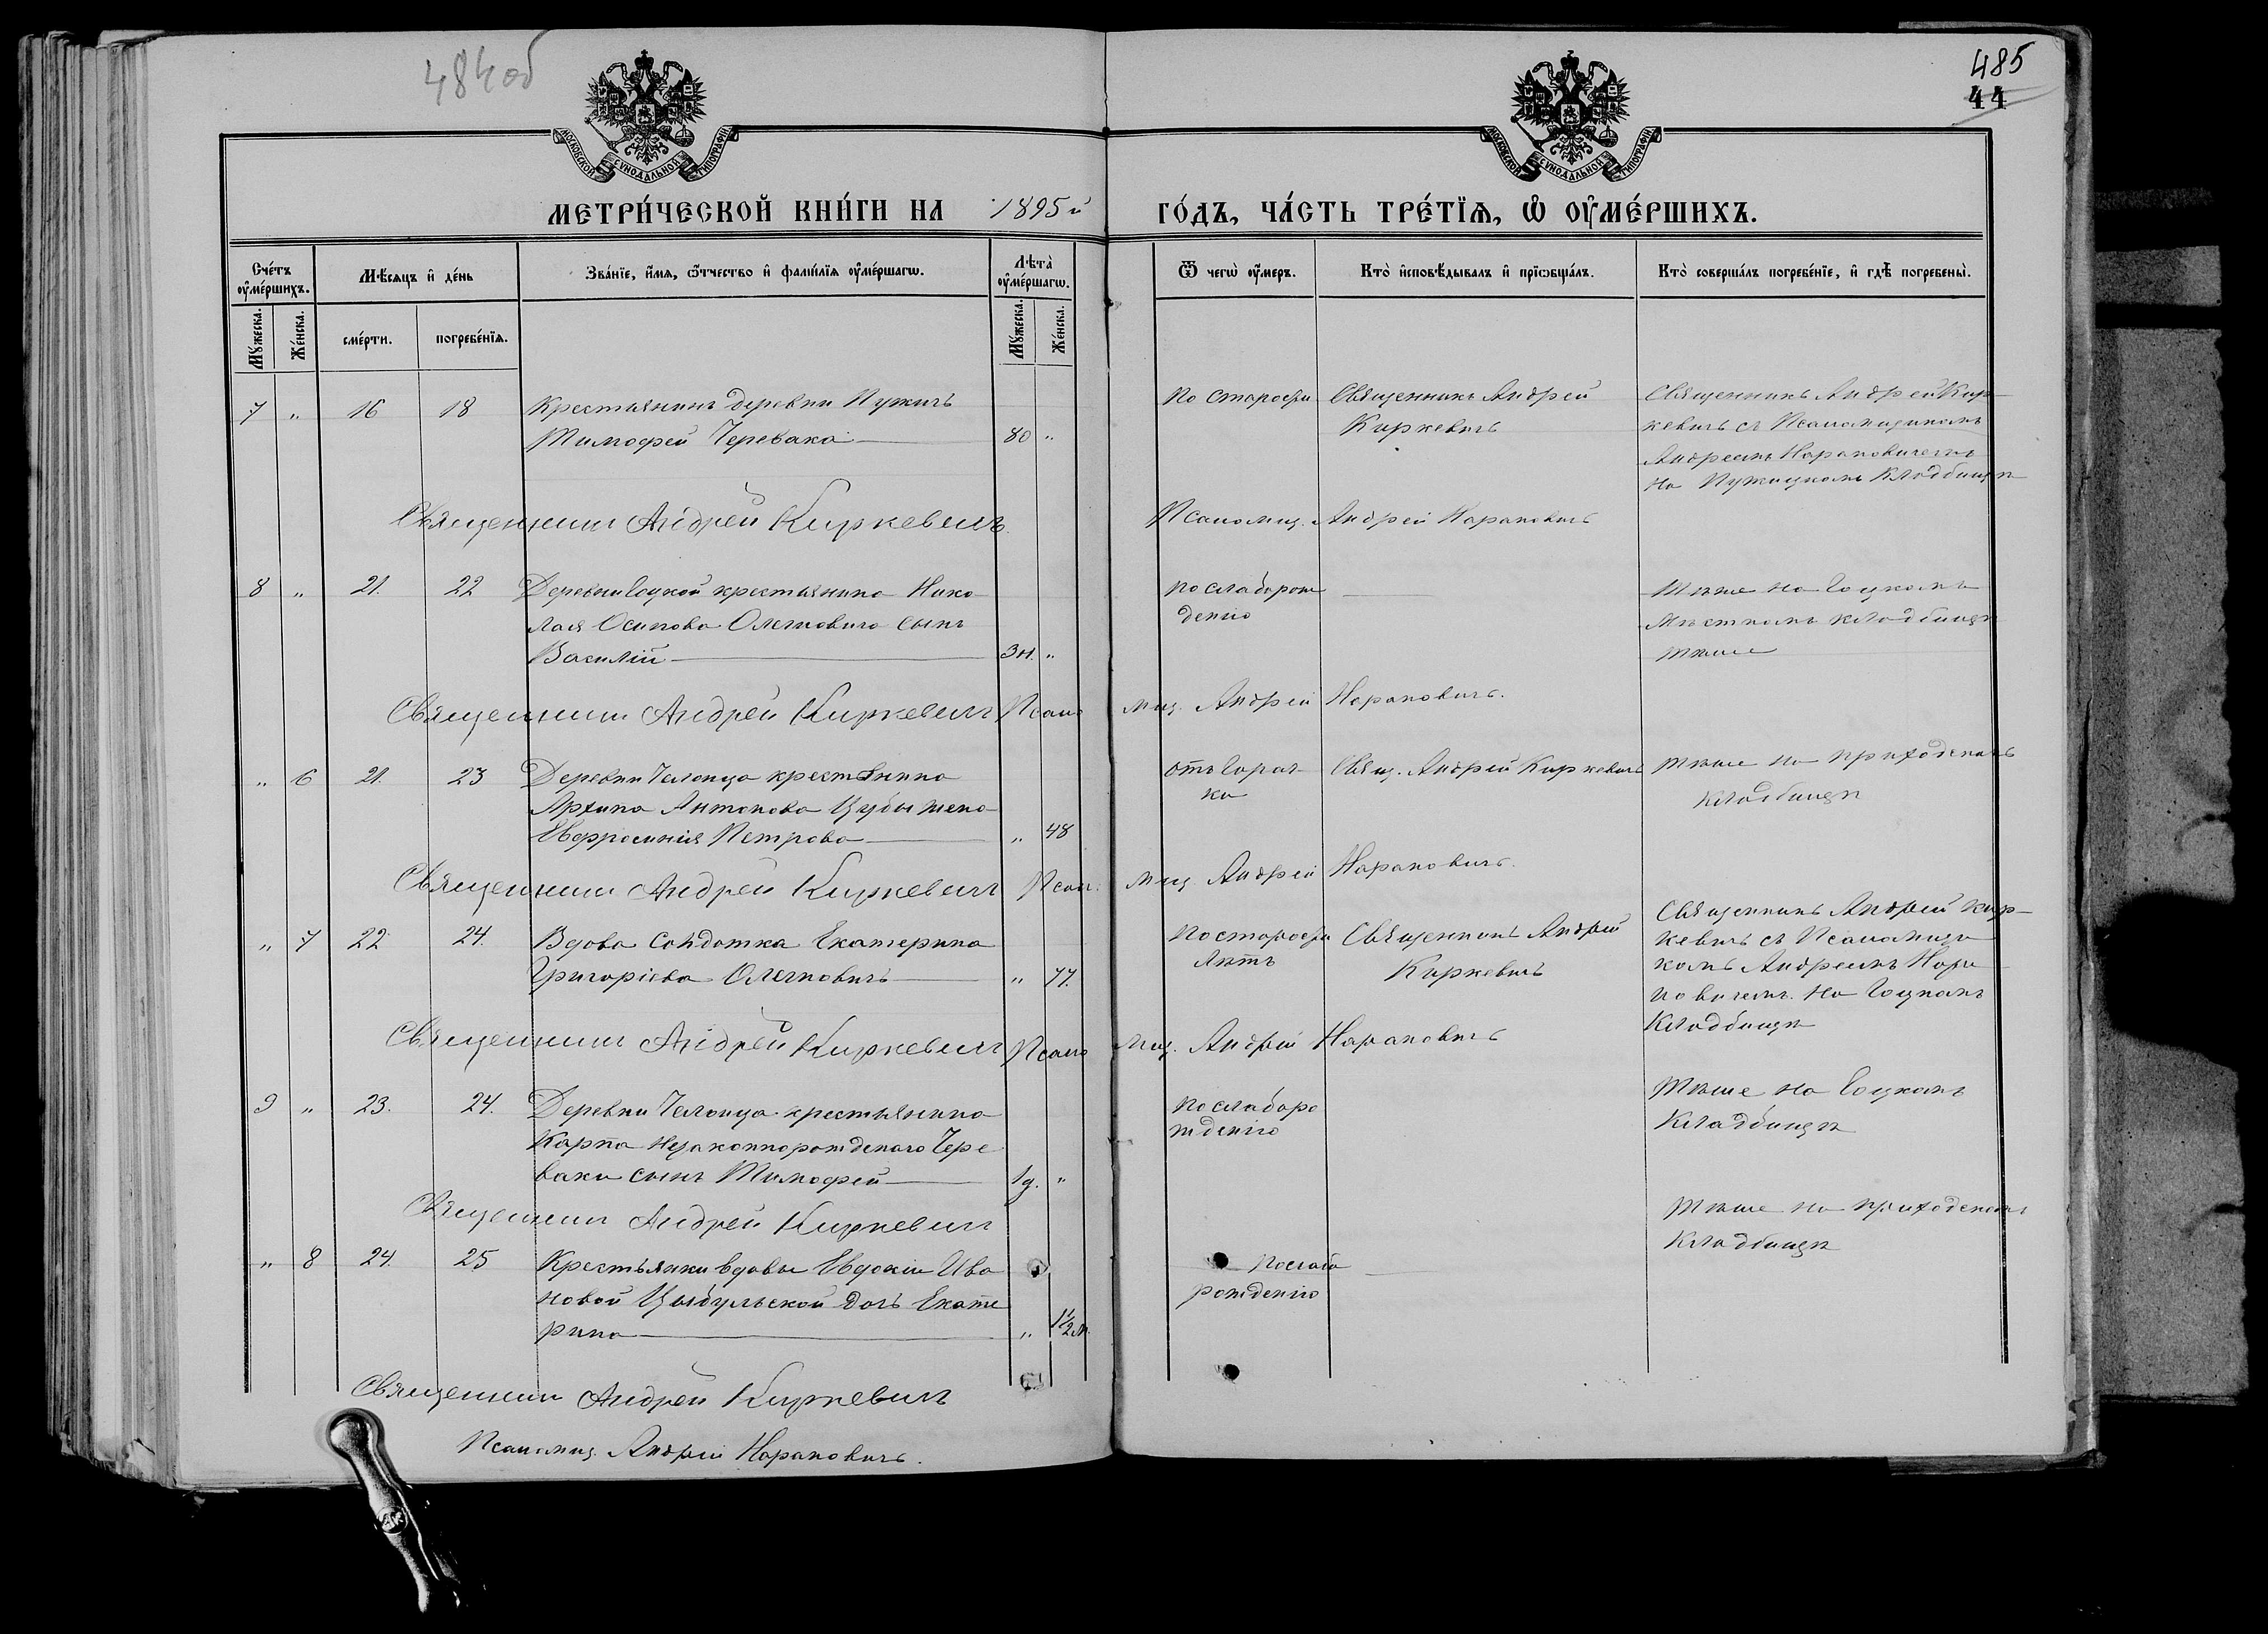 484об
485
44
МОСКОВСКОЙ СѴНОДАЛЬНОЙ ТИПОГРАФІИ
МОСКОВСКОЙ СѴНОДАЛЬНОЙ ТИПОГРАФІИ
МЕТРИ́ЧЕСКОЙ КНИ́ГИ НА 1895й ГО́ДЪ, ЧА́СТЬ ТРЕ́ТЇѦ, Ѡ҆ ОУ҆МЕ́РШИХЪ.
Сче́тъ оу҆ме́ршихъ.
Мꙋ́жеска.
Же́нска.
Мѣ́сяцъ и҆ де́нь
сме́рти.
погребе́нїѧ.
Зва́нїе, и҆́мѧ, ѻ҆́тчество и҆ фамı́лїѧ оу҆ме́ршагѡ.
Лѣта̀ оу҆ме́ршагѡ.
Мꙋ́жеска.
Же́нска.
Ѿ чегѡ̀ оу҆́меръ.
Кто̀ и҆сповѣ́дывалъ и҆ прїѡбща́лъ.
Кто̀ соверша́лъ погребе́нїе, и҆ гдѣ̀ погребены̀.
7 " 16 18 Крестьянинъ деревни Пужичъ
Тимофей Черевака 80 "
По старости
Священникъ Андрей
Киркевичъ
Священникъ Андрей Кир-
кевичъ съ Псаломщикомъ
Андреемъ Нарановичемъ
на Пужицкомъ Кладбищѣ
Священникъ Андрей Киркевичъ.
Псаломщ. Андрей Нарановичъ
8 " 21. 22 Деревни Гоцкой крестьянина Нико
лая Осипова Олехновича сынъ
Василій 3н. "
по слаборож
денію
Тѣже на Гоцкомъ
Мѣстномъ кладбищѣ
тѣже
Священникъ Андрей Киркевичъ Псало
мщ. Андрей Нарановичъ.
" 6 21. 23 Деревни Челонца крестьянина
Архипа Антонова Цубы жена
Евфросинія Петрова " 48
отъ Горяч-
ки
Свящ. Андрей Киркевичъ
Тѣже на приходскомъ
кладбищѣ
Священникъ Андрей Киркевичъ Псал.
мщ Андрей Нарановичъ.
" 7 22. 24. Вдова Солдатка Екатерина
Григоріева Олехновичъ " 77.
По старости
лѣтъ
Священникъ Андрей
Киркевичъ
Священникъ Андрей Кир-
кевичъ съ Псаломщи
комъ Андреемъ Нара
новичемъ. на Гоцкомъ
Кладбищѣ
Священникъ Андрей Киркевичъ Псало
мщ. Андрей Нарановичъ
9 " 23. 24. Деревни Челонца крестьянина
Карпа незаконнорожденаго Чере
ваки сынъ Тимофей 1д. "
по слаборо
жденію
Тѣже на Гоцкомъ
Кладбищѣ
Священникъ Андрей Киркевичъ
" 8 24. 25 Крестьянки вдовы Евдокіи Ива
новой Цыбульской дочь Екате
рина " 1½м.
Послабо
рожденію
Тѣже на приходскомъ
Кладбищѣ
Священникъ Андрей Киркевичъ
Псаломщ. Андрей Нарановичъ.